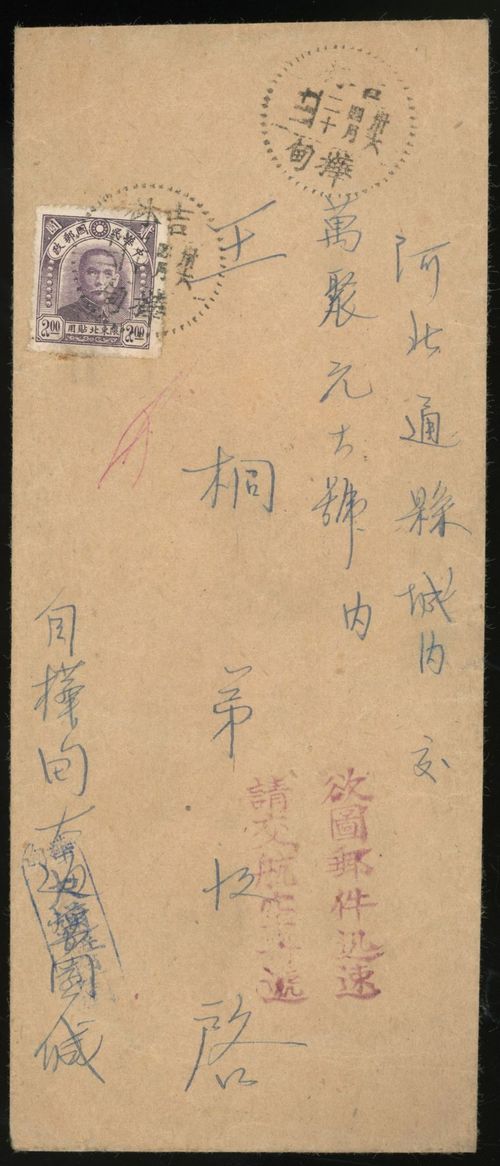 河北通縣城内 交
萬聚元大號内
王 桐 弟 收 啓
自樺甸
緘
欲圖郵件迅速
請交航空寄遞
吉林
卅六
四月
二十
樺甸
吉林
卅六
四月
樺甸
中華民國郵政
圓
2.00
限東北貼用
2.00